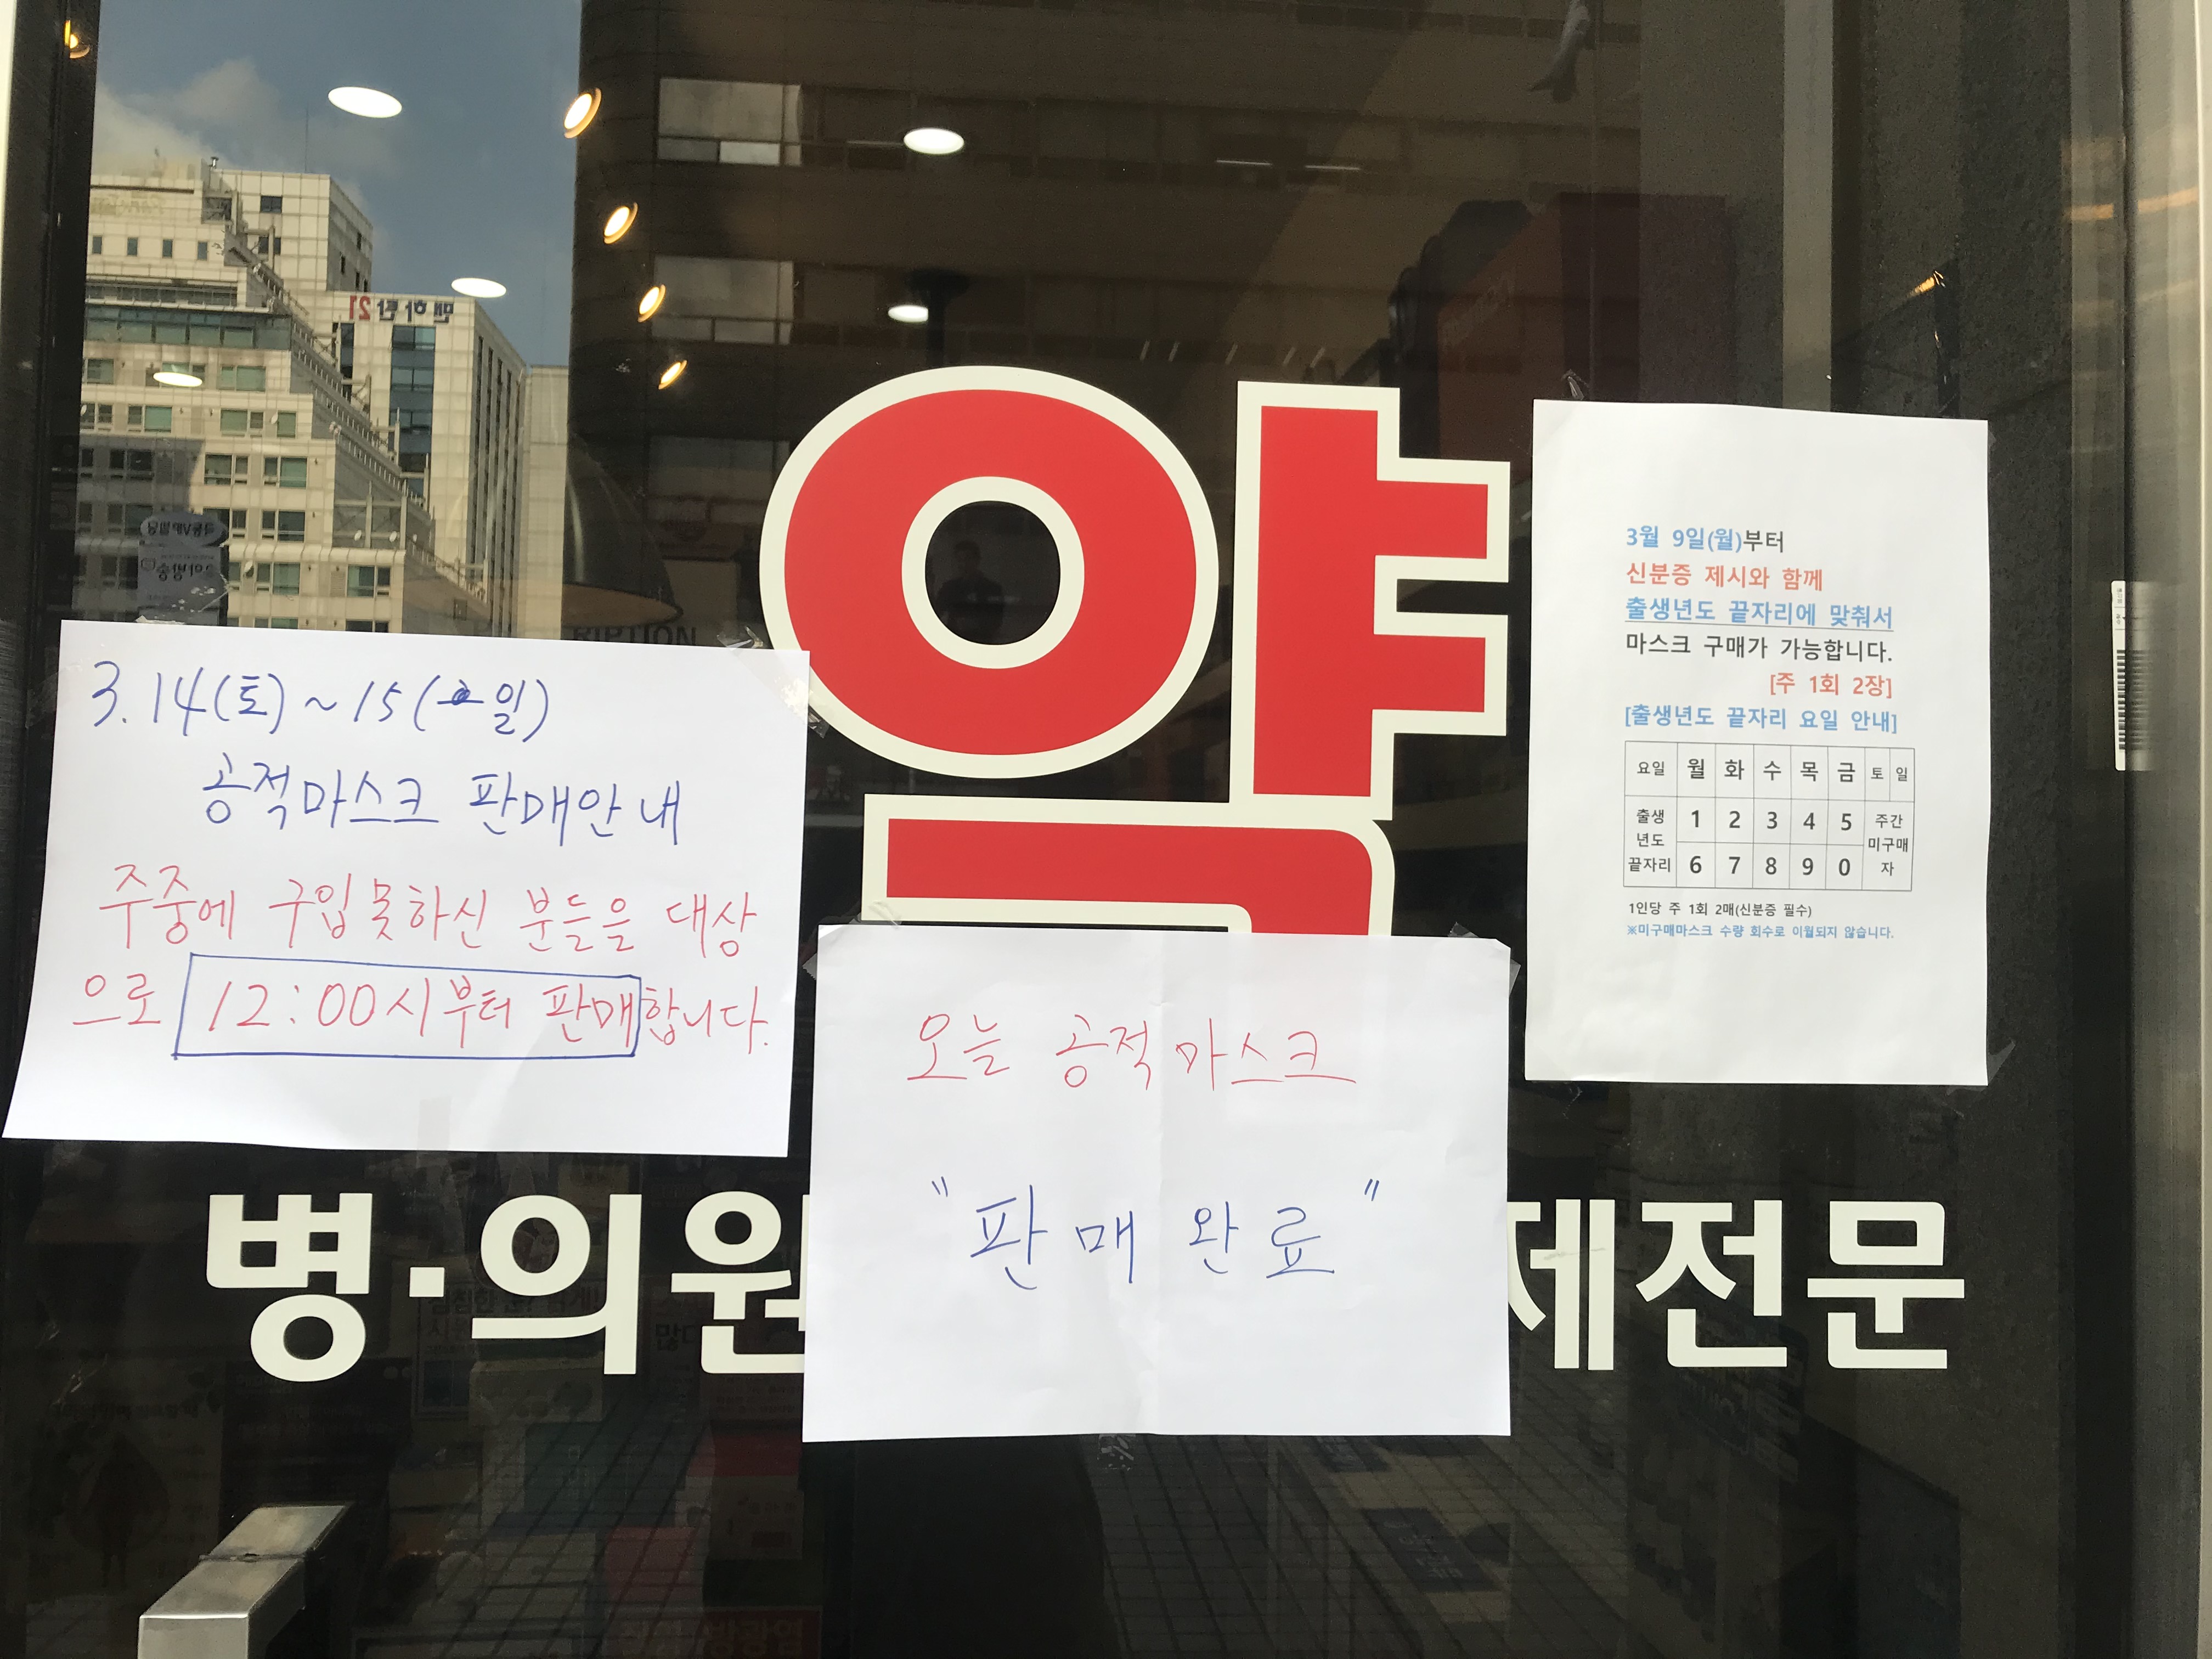 약
3. 14(토) ~ 15(일)
공적마스크 판매안내
주중에 구입못하신 분들을 대상
으로 12:00시부터 판매합니다.
오늘 공적마스크
"판매완료"
3월 9일(월)부터
신분증 제시와 함께
출생년도 끝자리에 맞춰서
마스크 구매가 가능합니다.
[주 1회 2장]
[출생년도 끝자리 요일 안내]
요일 월 화 수 목 금 토 일
출생년도 끝자리 1 2 3 4 5 주간 미구매자
6 7 8 9 0
1인당 주 1회 2매(신분증 필수)
※미구매마스크 수량 회수로 이월되지 않습니다.
병·의원 제전문
맨하탄21
RIPTION
방광염